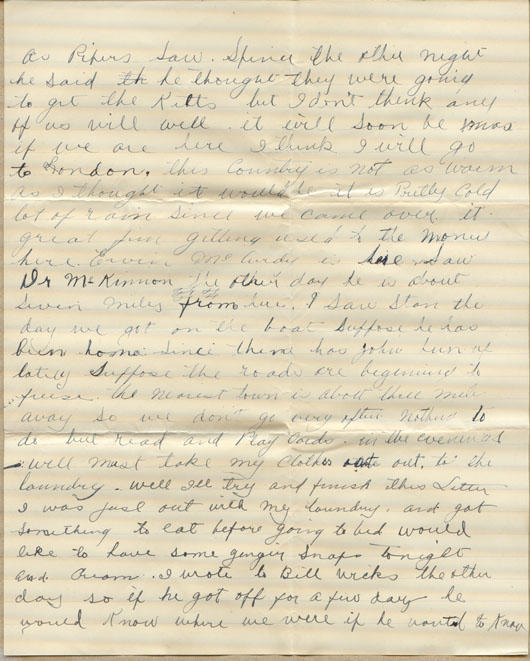 as Pipers saw. Spince the other night
he said th he thought they were going
to get the Kilts but I don't think any
of us will well. it will soon be xmas
if we are here I think I will go
to London. this Country is not as warm
as I thought it would be it is Pretty Cold
lot of rain since we came over it.
great fun getting used to the money
here. Ervin Mc is here saw
Dr McKinnon the other day he is about
seven miles from here. I saw Stan the
day we got on the boat suppose he has
been home since then has John been up
lately suppose the roads are beginning to
freise. the nearest town is about three miles
away so we don't go very often nothing to
do but read and Play Cards. in the evenings
well must take my clothes out. to the
laundry. well I'll try and finish this Letter
I was just out with my laundry. and got
something to eat before going to bed would
like to have some ginger snaps tonight
and Cream. I wrote to Bill Wicks the other
day so if he got off for a few days he
would Know where we were if he wanted to Know